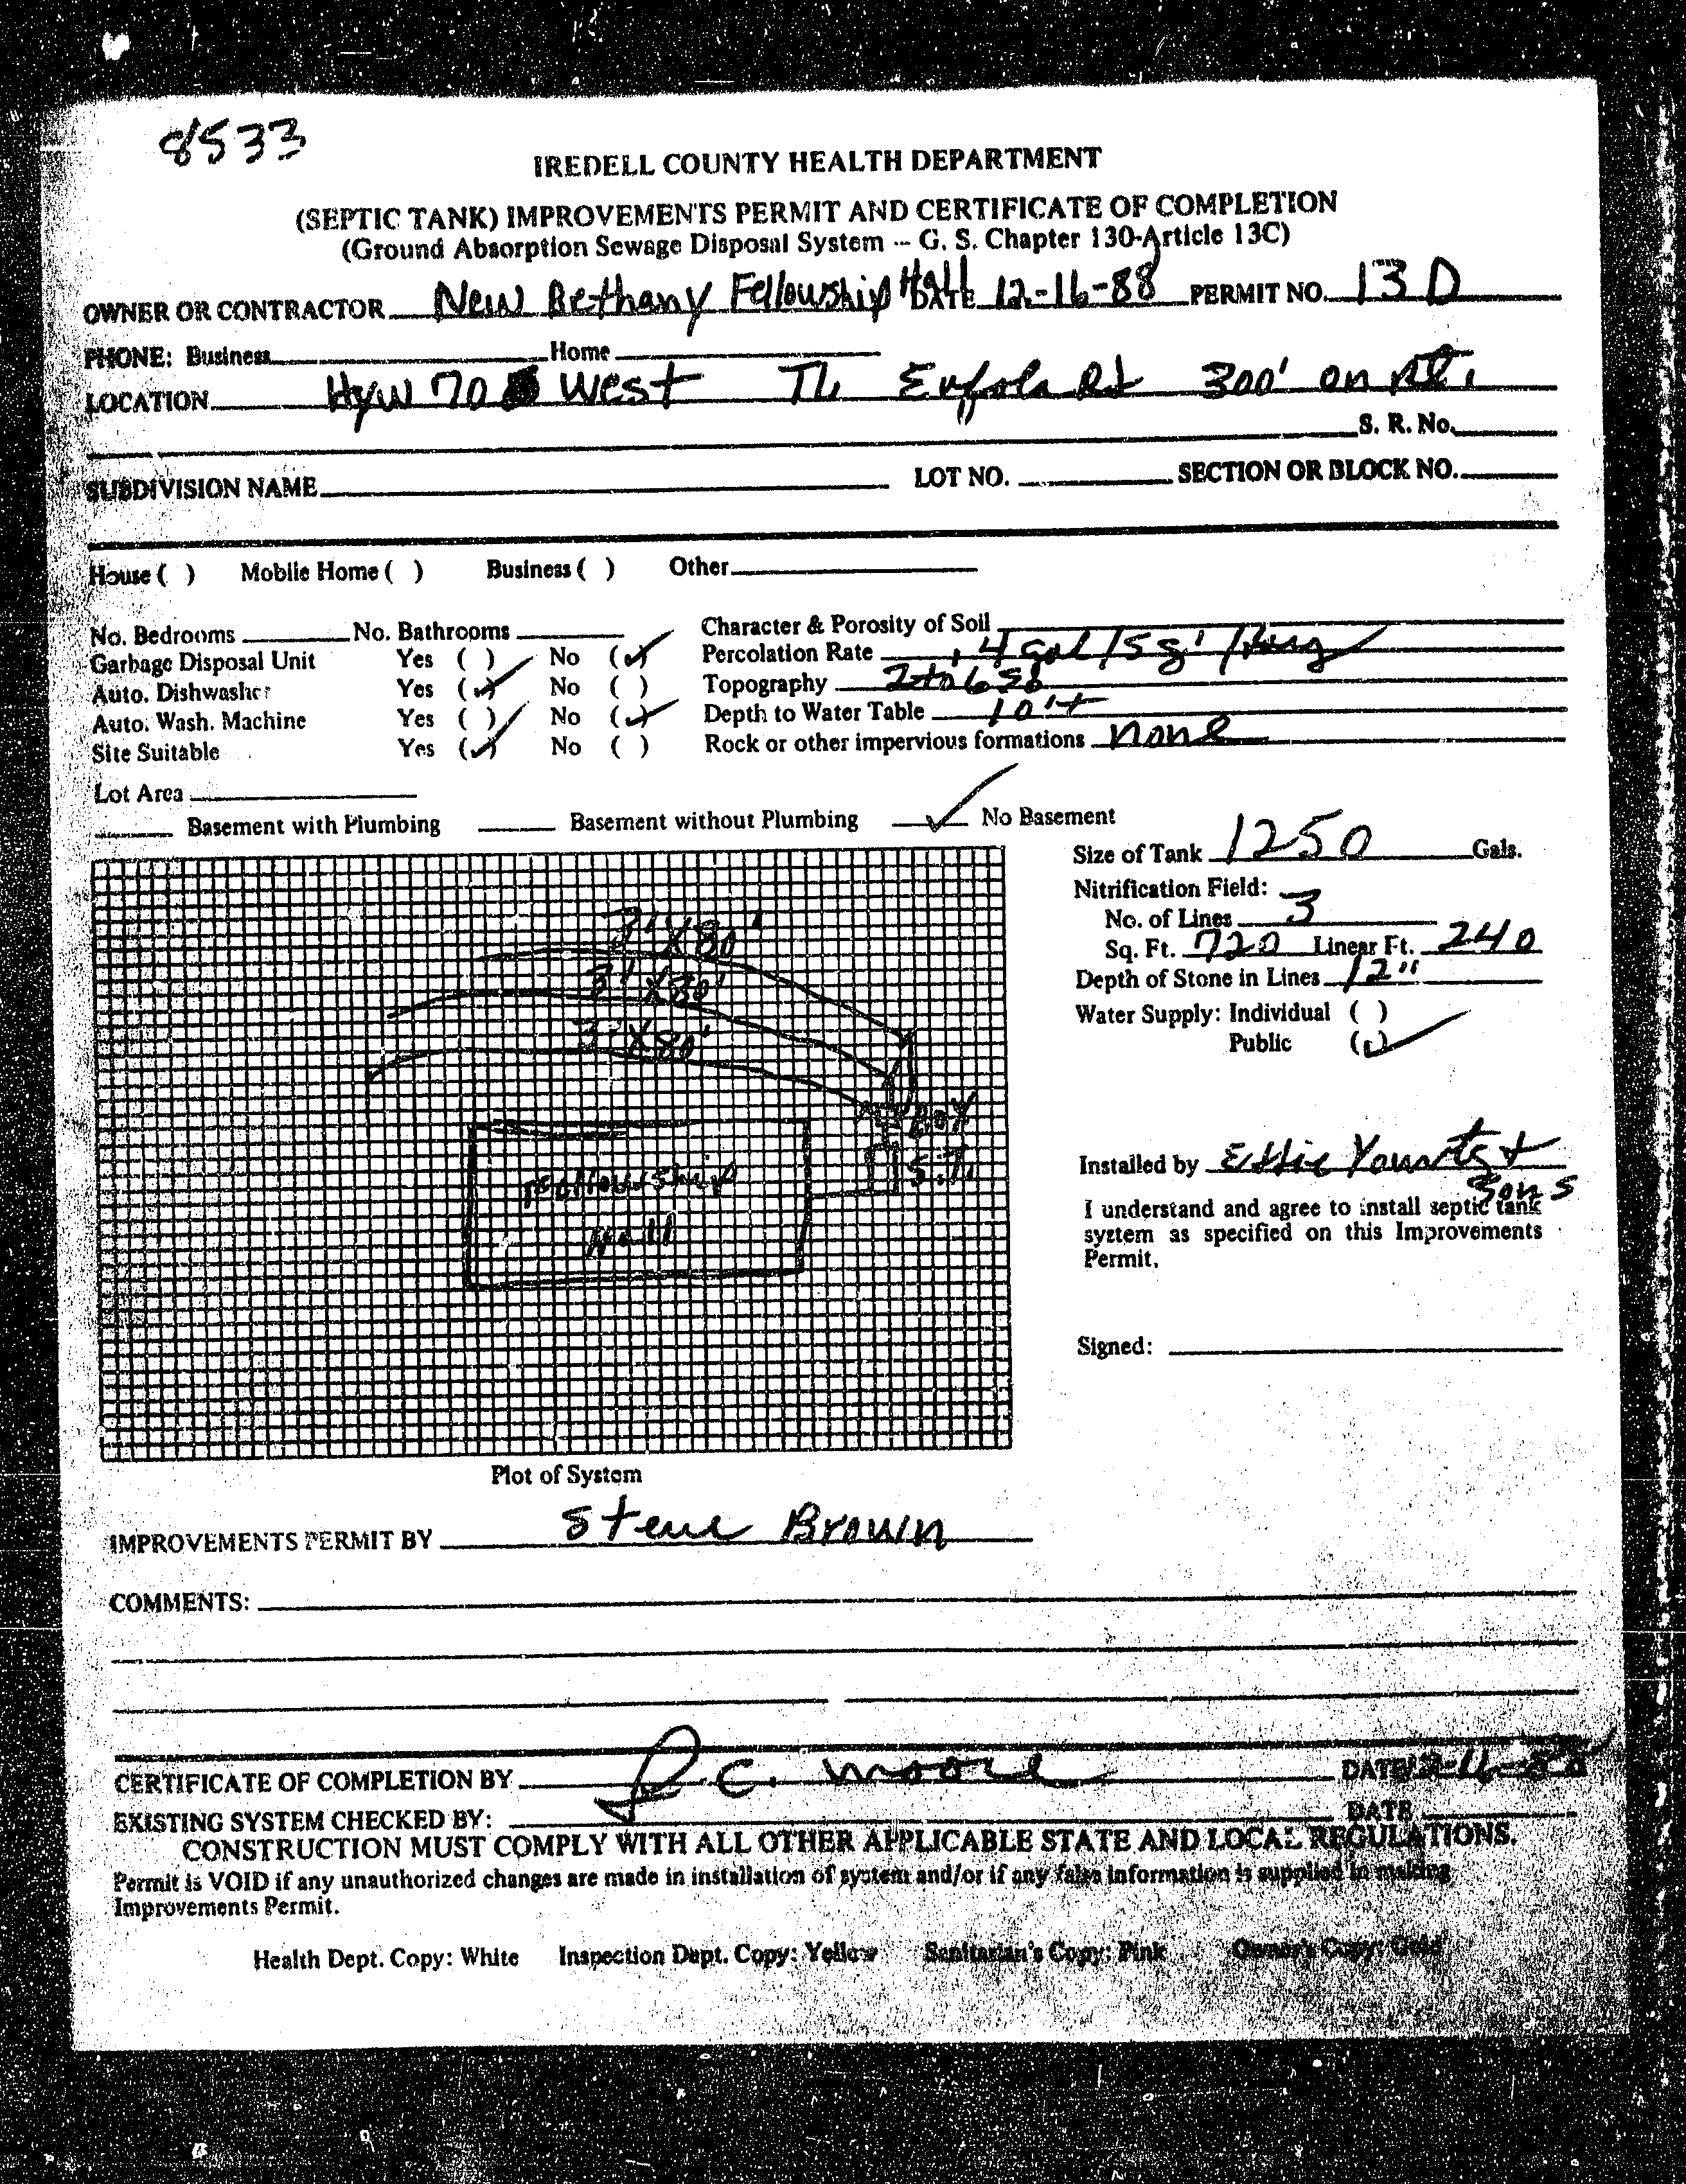 8533
IREDELL COUNTY HEALTH DEPARTMENT
(SEPTIC TANK) IMPROVEMENTS PERMIT AND CERTIFICATE OF COMPLETION
(Ground Absorption Sewage Disposal System -- G. S. Chapter 130-Article 13C)
OWNER OR CONTRACTOR New Bethany Fellowship Hall DATE 12-16-88 PERMIT NO. 13 D
PHONE: Business Home
LOCATION Hyw 70 West TL Eufola Rd 300' on Rt.
S. R. No.
SUBDIVISION NAME LOT NO. SECTION OR BLOCK NO.
House ( ) Mobile Home ( ) Business ( ) Other
No. Bedrooms No. Bathrooms Character & Porosity of Soil
Garbage Disposal Unit Yes ( ) No (✓) Percolation Rate .4 gal/sq'/
Auto. Dishwasher Yes (✓) No ( ) Topography 2 to 6
Auto. Wash. Machine Yes ( ) No (✓) Depth to Water Table 10'+
Site Suitable Yes (✓) No ( ) Rock or other impervious formations none
Lot Area
Basement with Plumbing Basement without Plumbing ✓ No Basement
Size of Tank 1250 Gals.
Nitrification Field:
No. of Lines 3
Sq. Ft. 720 Linear Ft. 240
Depth of Stone in Lines 12"
Water Supply: Individual ( )
Public (✓)
3' X 80'
3' X 80'
3' X 80'
Box
S.T.
Fellowship
Hall
Installed by Eddie Younts +
Sons
I understand and agree to install septic tank
system as specified on this Improvements
Permit.
Signed:
Plot of System
IMPROVEMENTS PERMIT BY Steve Brown
COMMENTS:
CERTIFICATE OF COMPLETION BY R.C. Moore DATE 12-16-88
EXISTING SYSTEM CHECKED BY: DATE
CONSTRUCTION MUST COMPLY WITH ALL OTHER APPLICABLE STATE AND LOCAL REGULATIONS.
Permit is VOID if any unauthorized changes are made in installation of system and/or if any false information is supplied in making
Improvements Permit.
Health Dept. Copy: White Inspection Dept. Copy: Yellow Sanitarian's Copy: Pink Owner's Copy: Gold